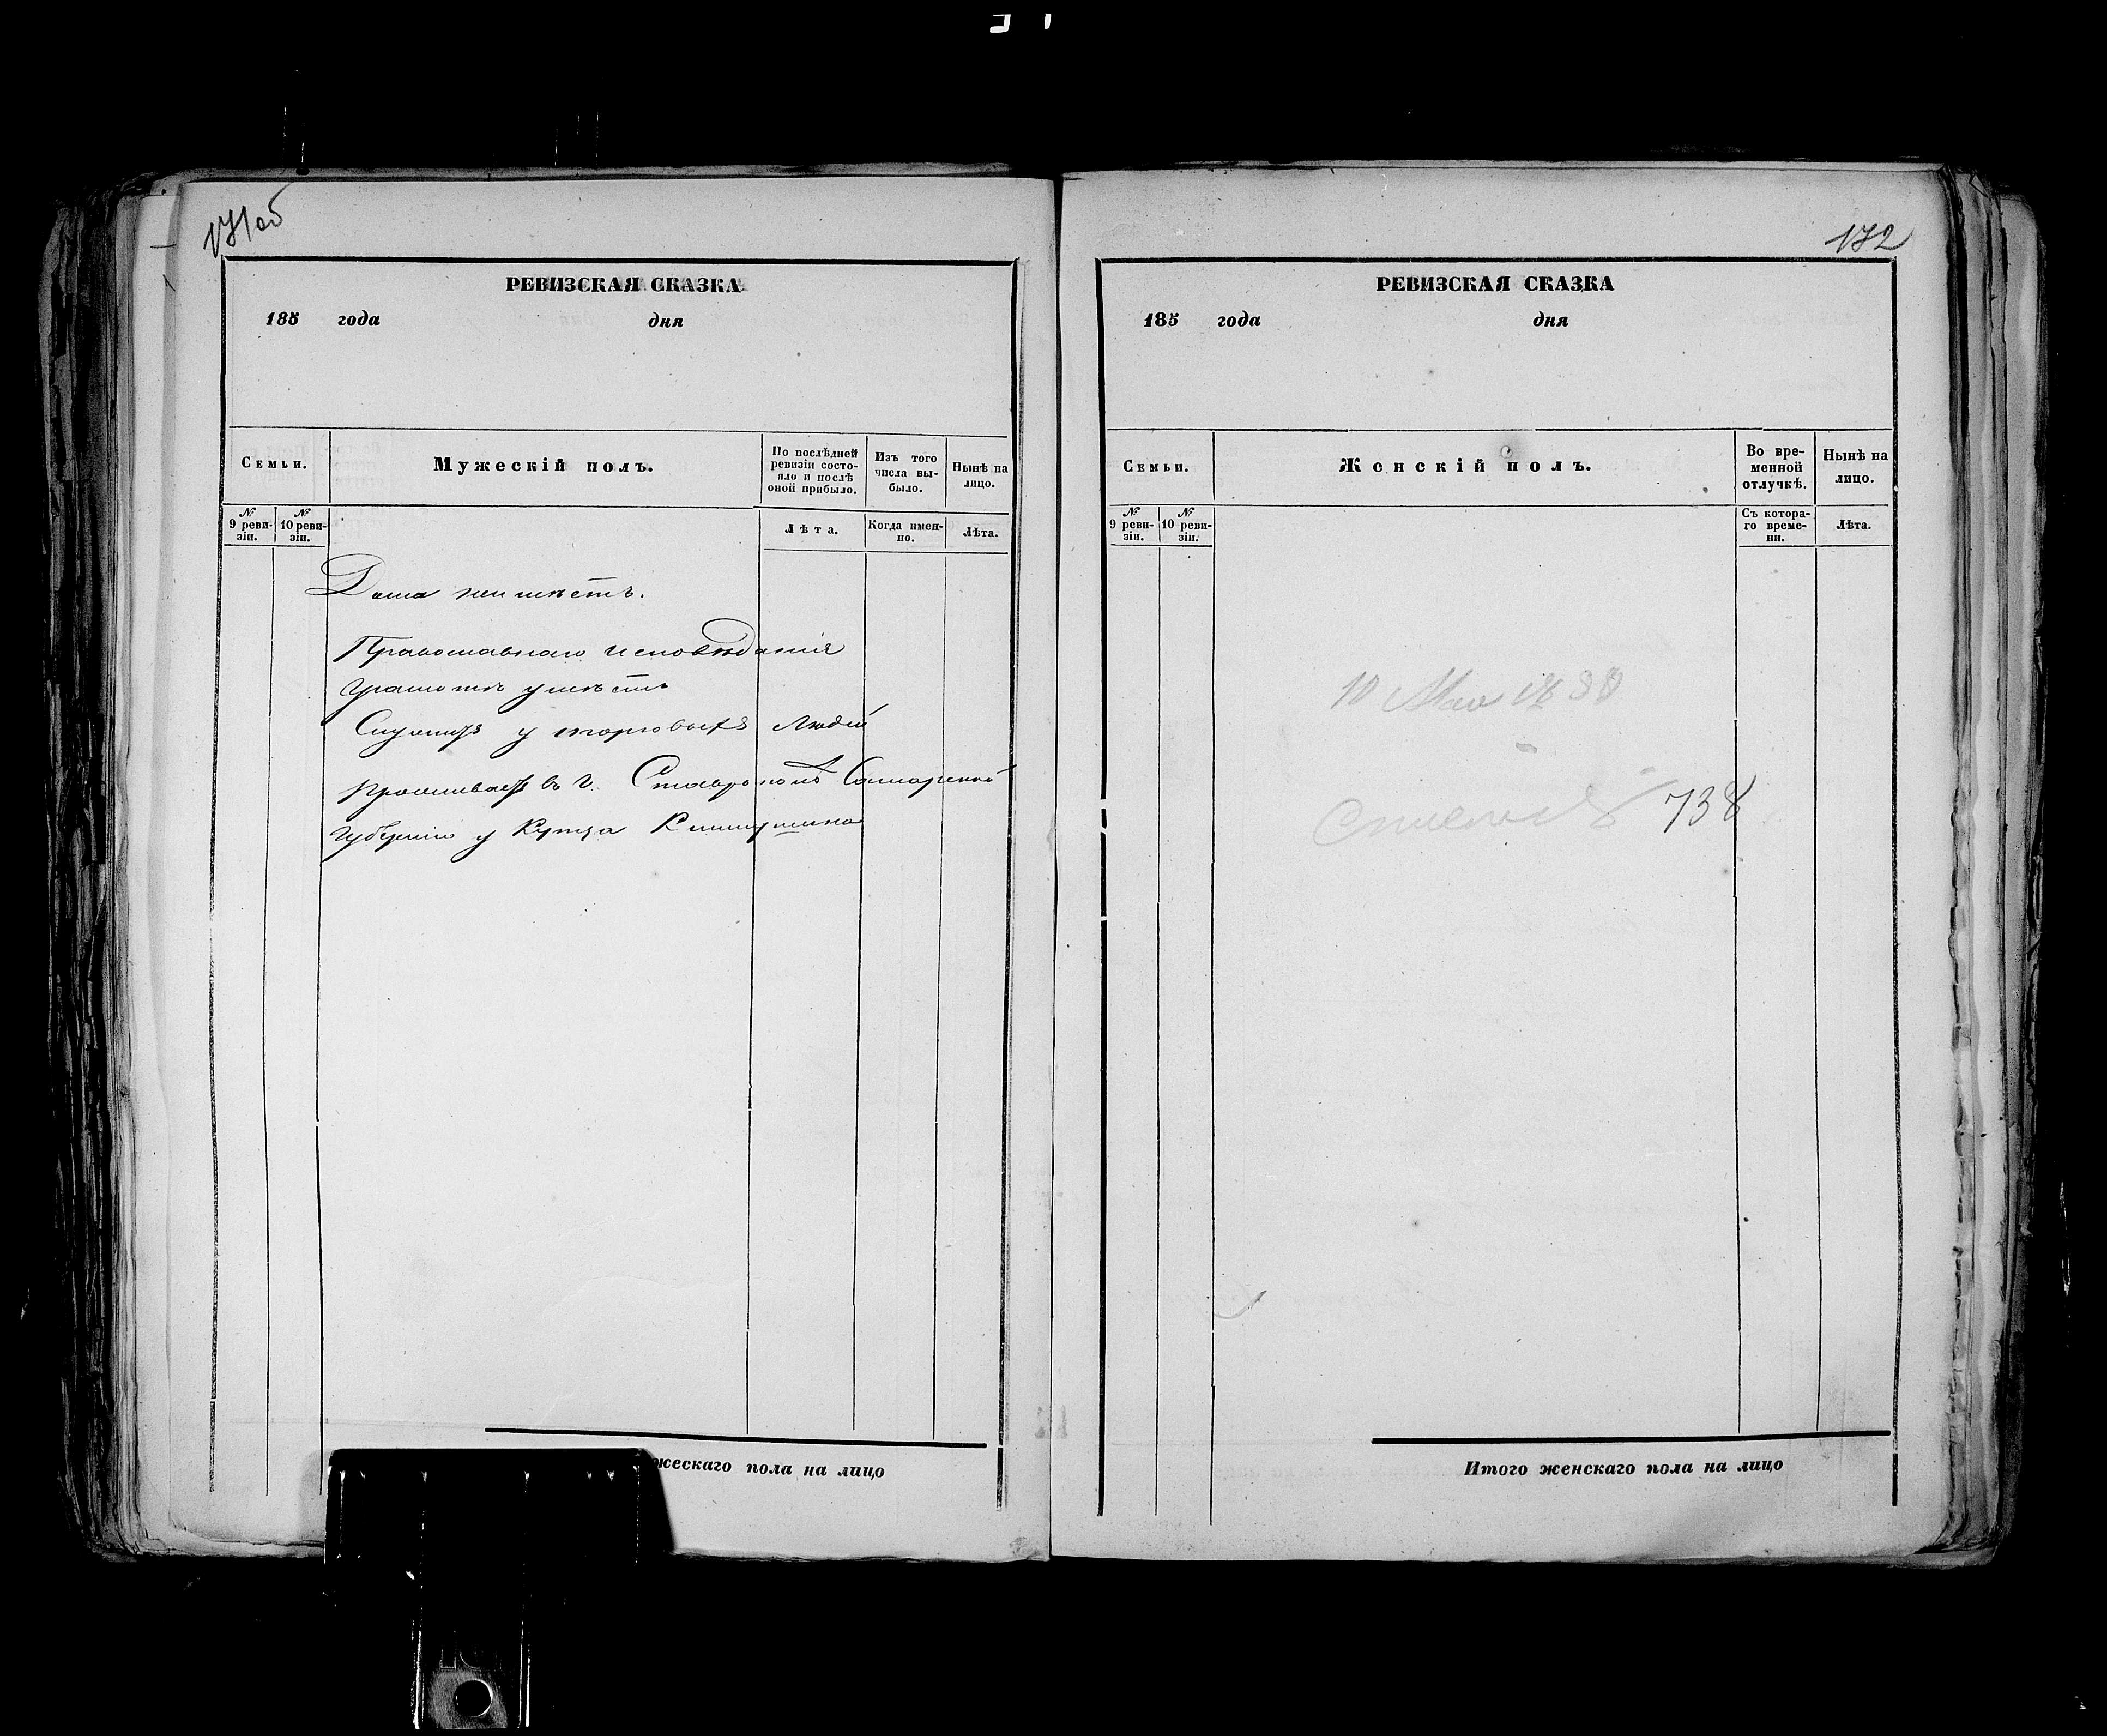 171об
РЕВИЗСКАЯ СКАЗКА
185 года дня
Семьи.
Мужескій полъ.
По послѣдней ревизіи состояло и послѣ оной прибыло.
Изъ того числа выбыло.
Нынѣ на лицо.
№ 9 ревизіи.
№ 10 ревизіи.
Лѣта.
Когда именно.
Лѣта.
Дома неимѣетъ.
Православнаго исповѣданія
Грамотѣ умѣетъ
Служитъ у торговыхъ людей
проживаетъ въ г. Ставрополѣ Самарской
Губерніи у Купца
жескаго пола на лицо
172
РЕВИЗСКАЯ СКАЗКА
185 года дня
Семьи.
Женскій полъ.
Во временной отлучкѣ.
Нынѣ на лицо.
№ 9 ревизіи.
№ 10 ревизіи.
Съ котораго времени.
Лѣта.
10 Мая
738
Итого женскаго пола на лицо